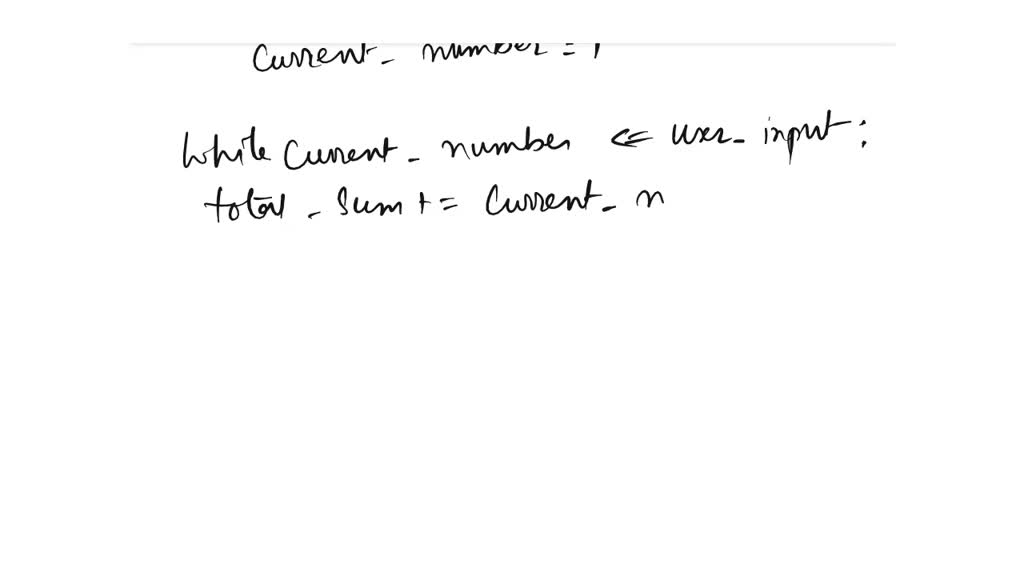 Current_ number = 1
While Current_ number <= user_ input :
total_ Sum + = Current_ n